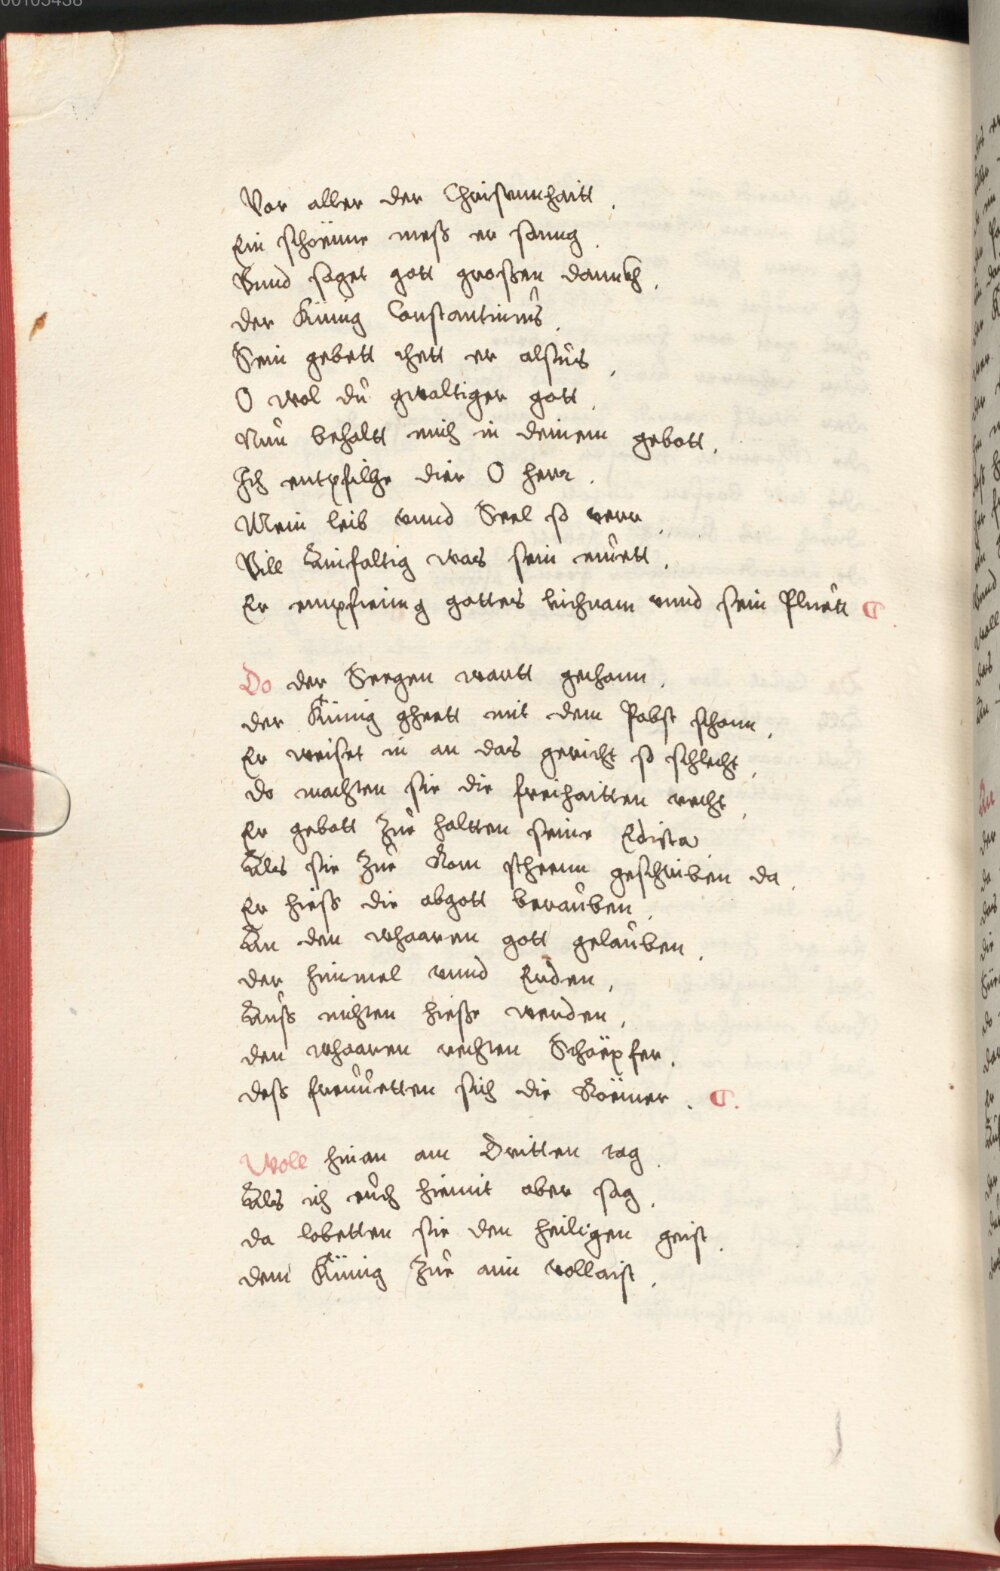 00105438
Vor aller der Chrisennhaitt .
Ein schoënne mess er sanng .
Vnnd saget gott grossen dannckh .
der Künig Constantinus .
Sein gebett thett er alsus .
O wol du gwaltiger gott .
Nun behalt mich in deinem gebott .
Ich entpfilhe dier O herr .
Mein leib vnnd Seel so verr .
Vill Ainfaltig was sein muett .
Er empfieing gottes leichnam vnnd sein Pluett
Do der Seegen wartt gethann .
der Künig gheett mit dem Pabst schonn .
Er weiset in an das gericht so schlecht .
do machten sie die freihaitten recht .
Er gebott zue haltten seine Edicta .
Als sie zue Rom stheenn geschriben da .
Er hiess die abgott berauben .
An den whaaren gott gelauben .
der himmel vnnd Erden .
Auss nichten hiesse werden .
den whaaren rechten Schöepfer .
dess freuuetten sich die Röemer .
Woll hinan am Dritten tag .
Als ich euch hiemit aber sag .
da lobetten sie den heiligen geist .
dem Künig zue ain vollaist .